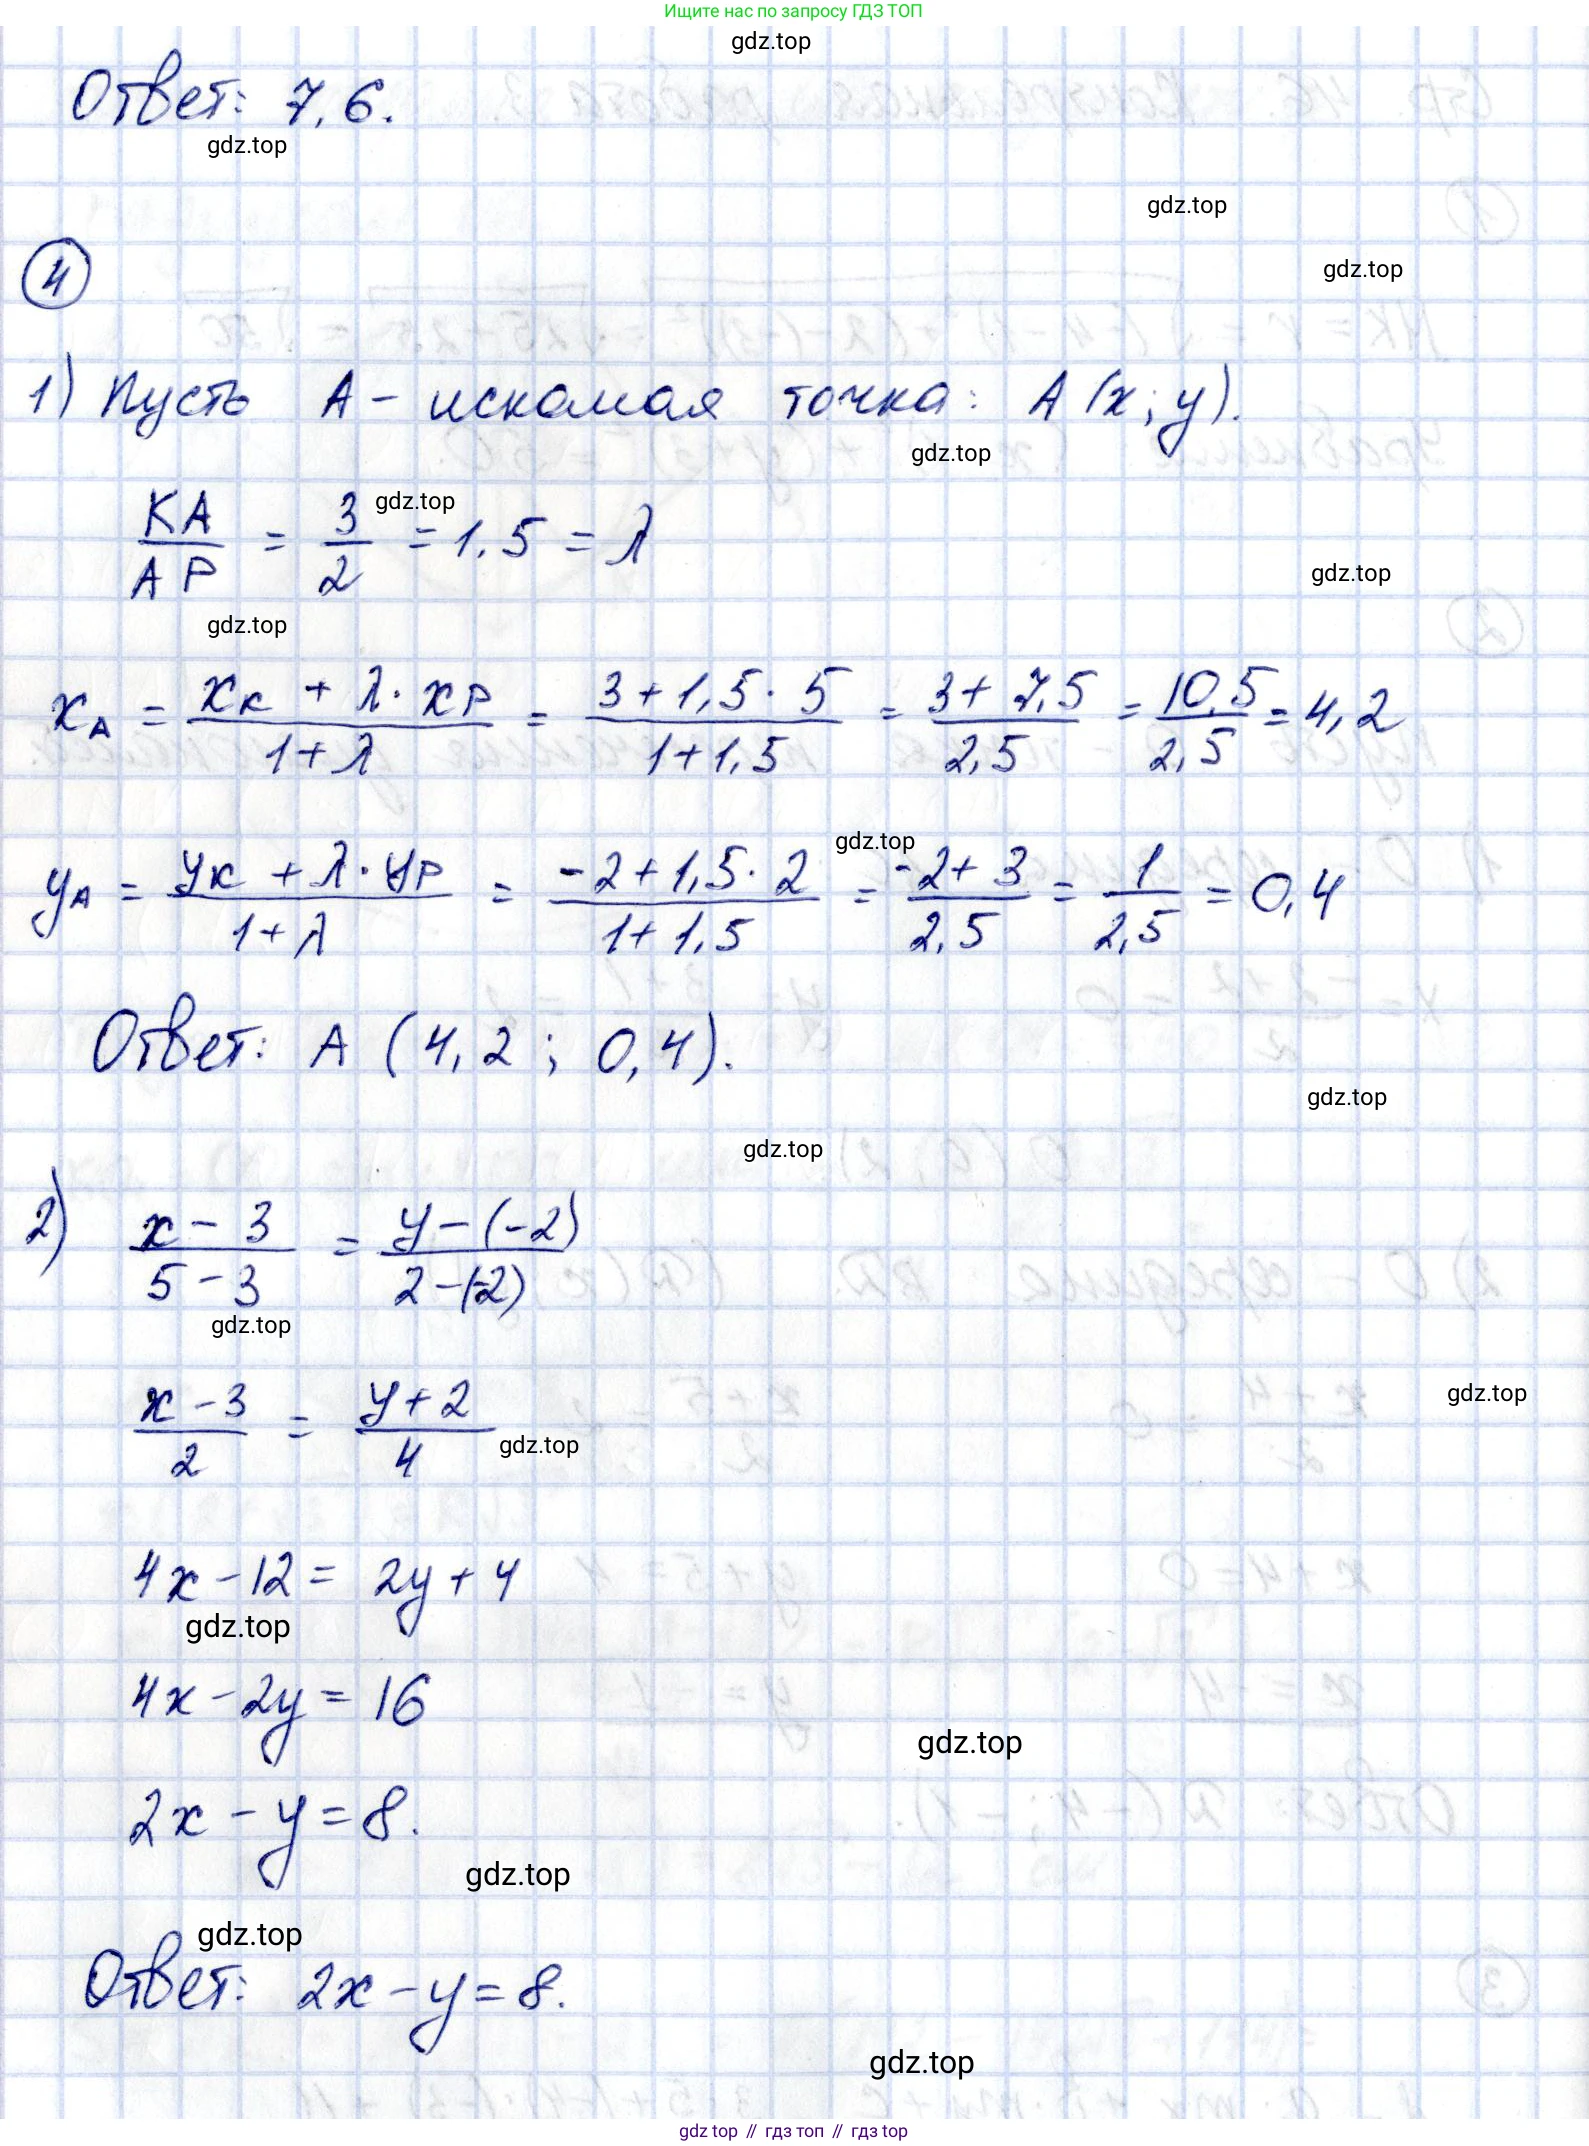 Ищите нас по запросу ГДЗ ТОП
gdz.top
Ответ: 7,6.
gdz.top
gdz.top
4
gdz.top
1) Пусть А – искомая точка: А (x; y).
gdz.top
KA/AP = 3/2 = 1,5 = λ
gdz.top
gdz.top
gdz.top
x_A = (x_K + λ · x_P)/(1 + λ) = (3 + 1,5 · 5)/(1 + 1,5) = (3 + 7,5)/2,5 = 10,5/2,5 = 4,2
gdz.top
y_A = (y_K + λ · y_P)/(1 + λ) = (-2 + 1,5 · 2)/(1 + 1,5) = (-2 + 3)/2,5 = 1/2,5 = 0,4
Ответ: А (4,2; 0,4).
gdz.top
gdz.top
2) (x - 3)/(5 - 3) = (y - (-2))/(2 - (-2))
gdz.top
(x - 3)/2 = (y + 2)/4
gdz.top
gdz.top
4x - 12 = 2y + 4
gdz.top
4x - 2y = 16
gdz.top
2x - y = 8.
gdz.top
gdz.top
Ответ: 2x - y = 8.
gdz.top
gdz top // гдз топ // гдз top